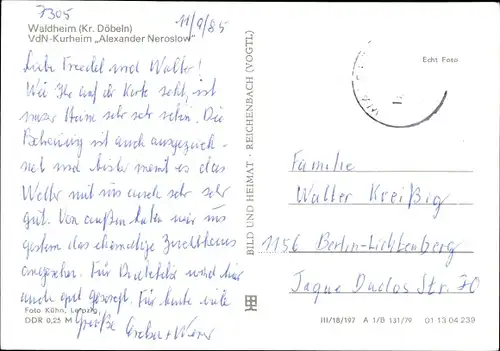 7305
11/9/85
Waldheim (Kr. Döbeln)
VdN-Kurheim „Alexander Neroslow"
Liebe Friedel und Walter!
Wie Ihr auf der Karte seht, ist
unser Heim sehr sehr schön. Die
Betreuung ist auch ausgezeich-
net und bisher meint es das
Wetter mit uns auch sehr sehr
gut. Von außen haben wir uns
gestern das ehemalige Zuchthaus
angesehen. Für wird hier
auch gut gesorgt. Für heute viele
Grüße
Foto Kühn, Leipzig
DDR 0,25 M
BILD UND HEIMAT · REICHENBACH (VOGTL)
Echt Foto
Familie
Walter Kreißig
1156 Berlin-Lichtenberg
Jaque Duclos Str. 70
III/18/197 A 1/B 131/79 01 13 04 239